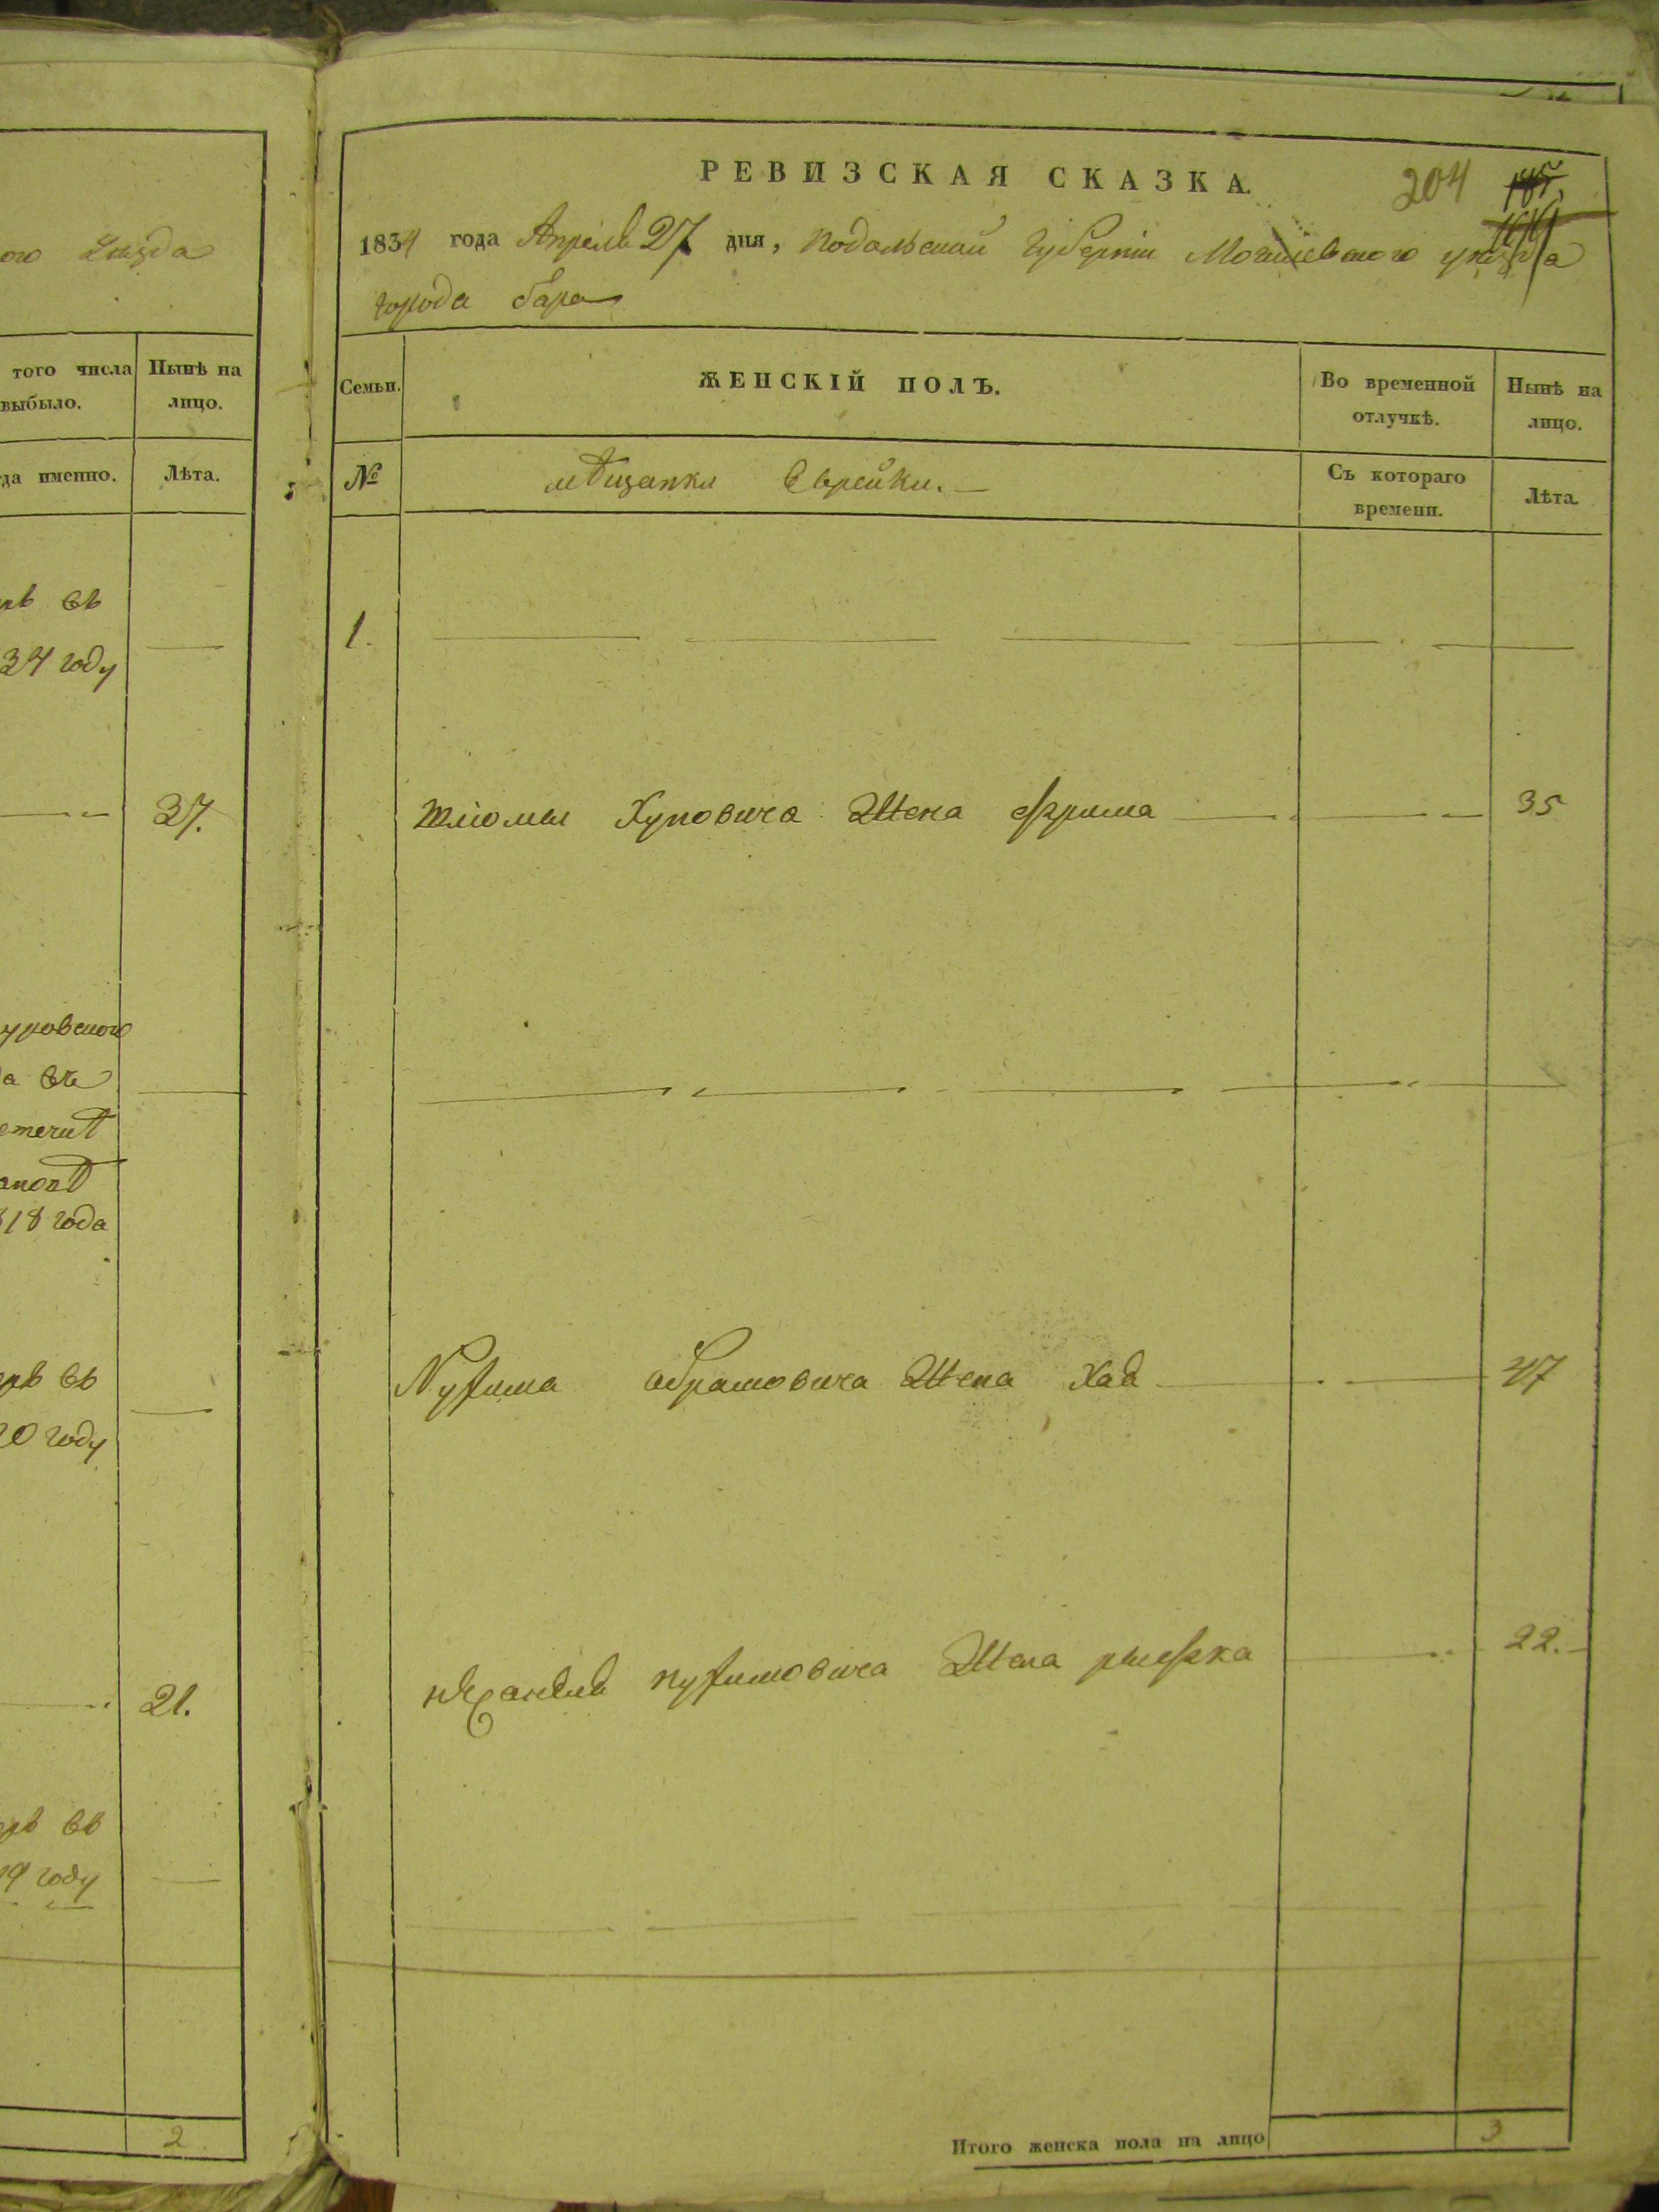 ого Уѣзда
того числа выбыло.
Нынѣ на лицо.
да именно.
Лѣта.
въ
34 году
37.
уровского
а въ
18 года
въ
20 году
21.
въ
19 году
2
РЕВИЗСКАЯ СКАЗКА.
204
185
1834 года Апреля 27 дня, Подольской Губернiи Могилевского уѣзда
города Бара
Семьи.
ЖЕНСКIЙ ПОЛЪ.
Во временной отлучкѣ.
Нынѣ на лицо.
№
мѣщанки Еврейки.
Съ котораго времени.
Лѣта.
1.
Шлiомы Хуновича Жена Фрима 35
Нухима Абрамовича Жена Хаа 47
Нухимовича Жена 22.
Итого женска пола на лицо 3